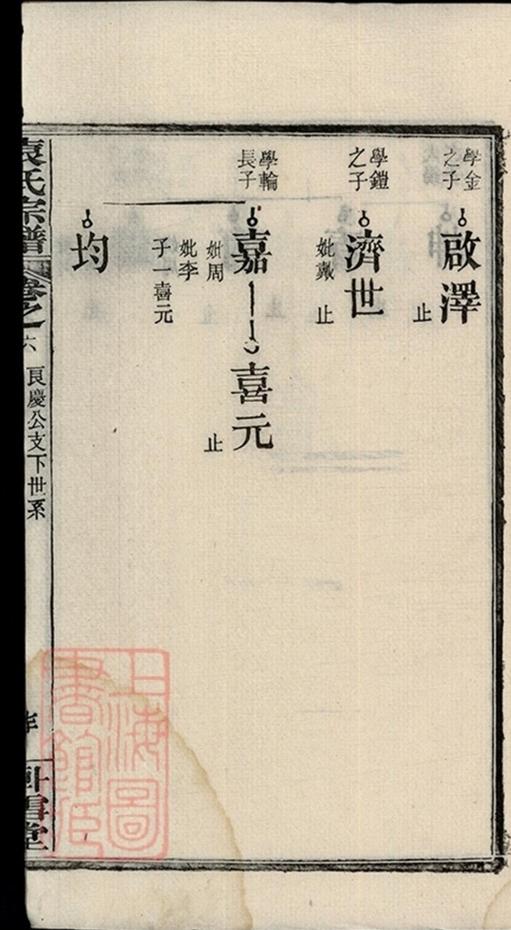 學金之子
啟澤
止
學鎧之子
濟世
妣戴
止
學輪長子
嘉
妣周
妣李
子一喜元
喜元
止
均
袁氏宗譜
卷之六
良慶公支下世系
臥雪堂
上海圖書館藏